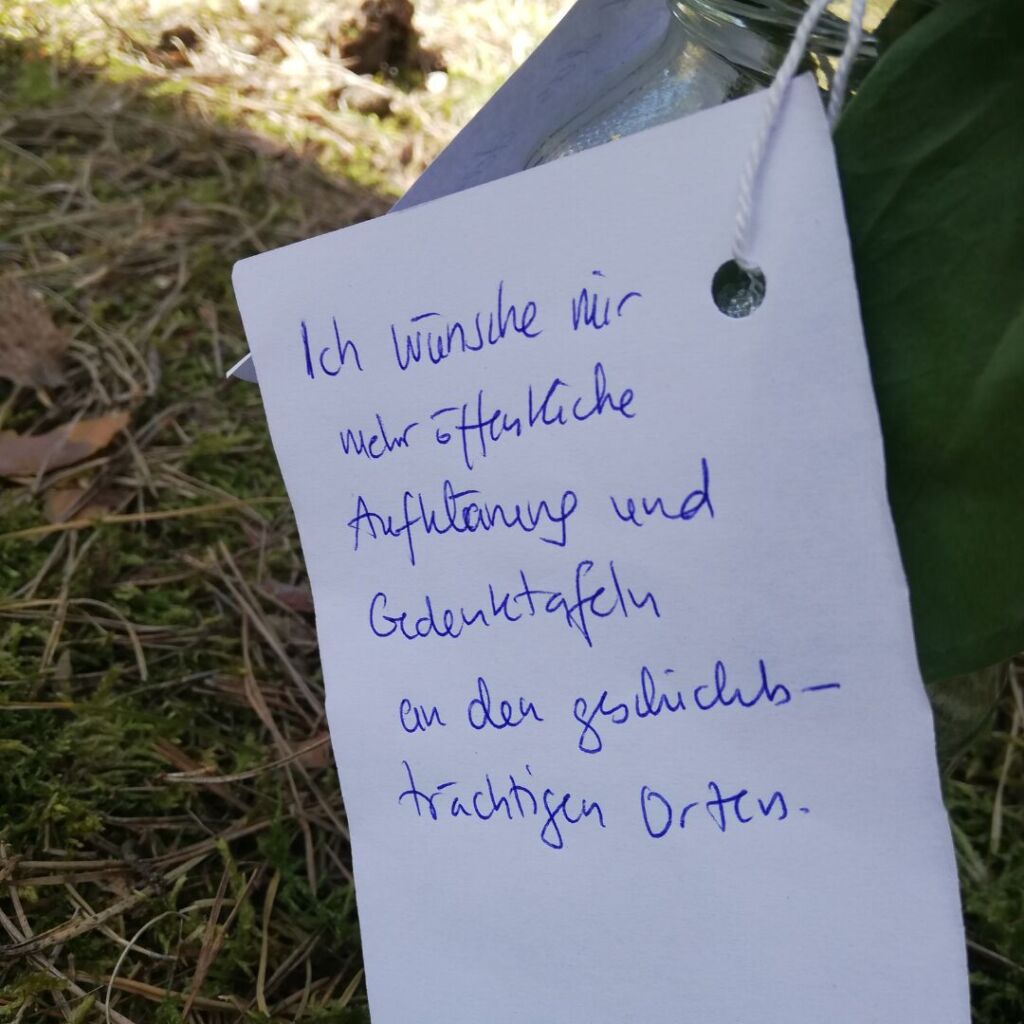 Ich wünsche mir
mehr öffentliche
Aufklärung und
Gedenktafeln
an den geschichts-
trächtigen Orten.